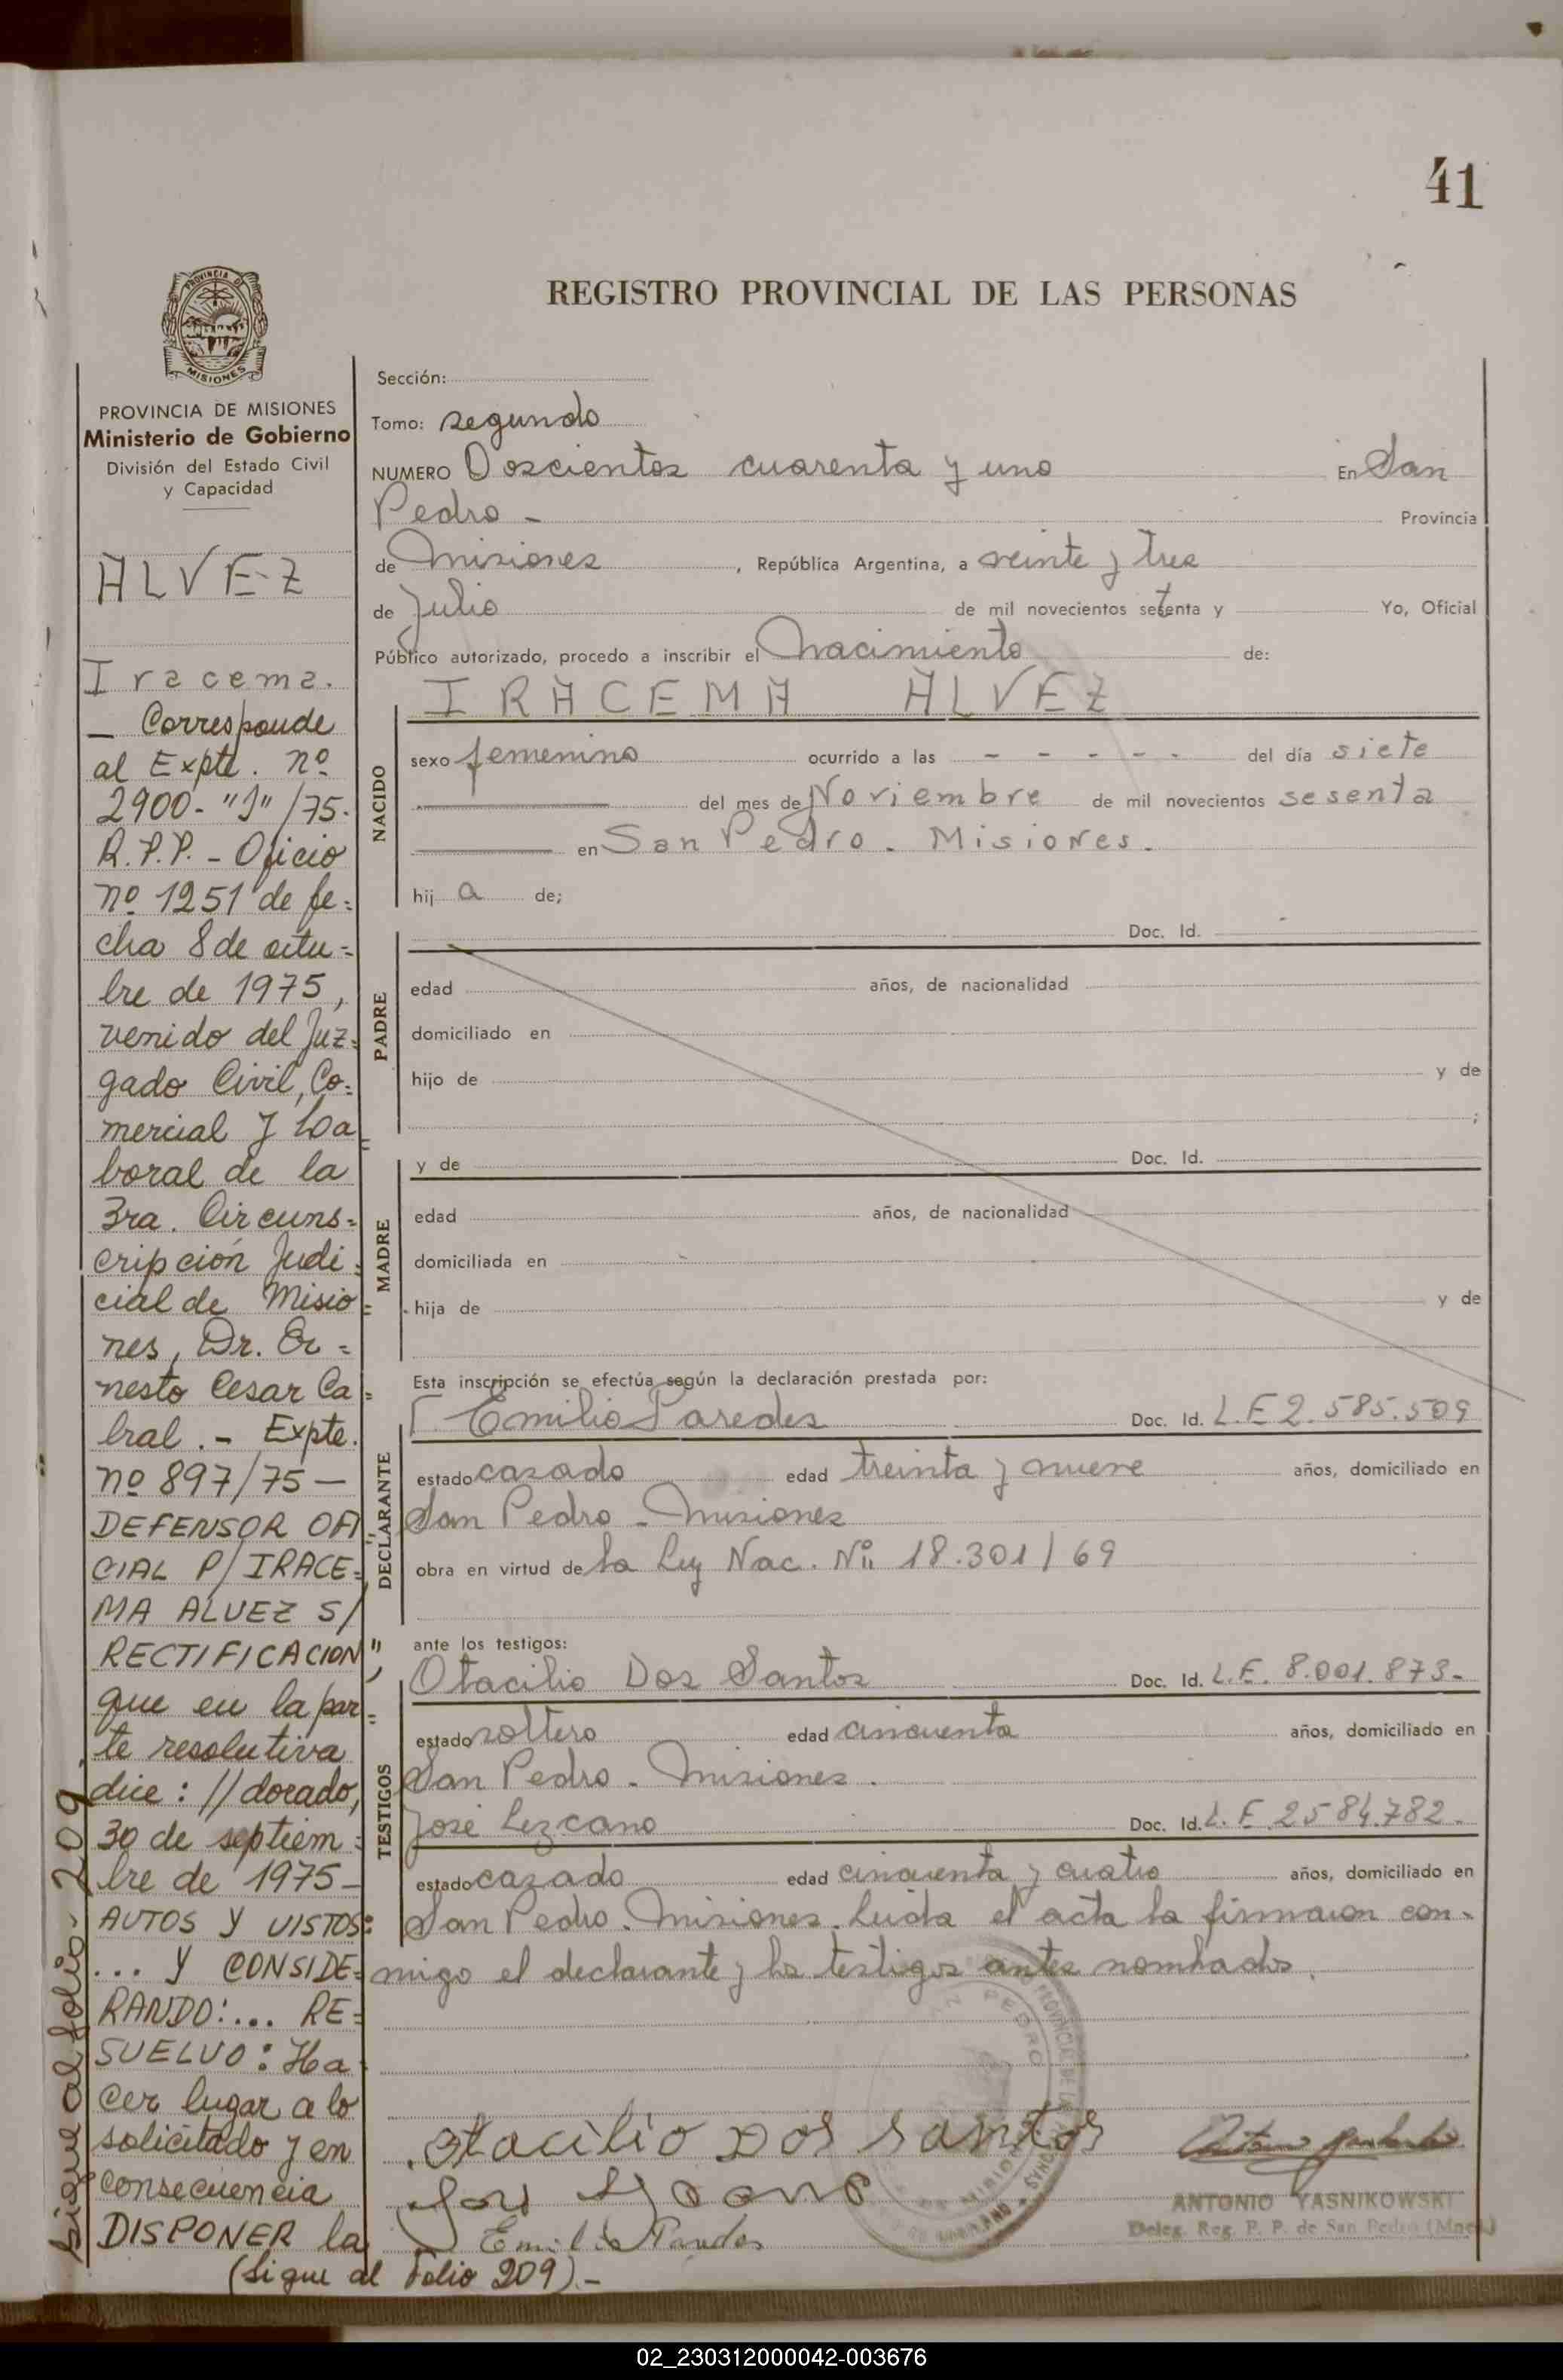 41
REGISTRO PROVINCIAL DE LAS PERSONAS
PROVINCIA DE
MISIONES
PROVINCIA DE MISIONES
Ministerio de Gobierno
División del Estado Civil
y Capacidad
ALVEZ
Iracema.
— Corresponde
al Expte. nº
2900-"J"/75.
R.P.P. - Oficio
nº 1251 de fe=
cha 8 de octu=
bre de 1975,
venido del Juz=
gado Civil, Co=
mercial y La
boral de la
3ra. Circuns=
cripción Judi=
cial de Misio=
nes, Dr. Er=
nesto Cesar Ca=
bral. - Expte.
nº 897/75 —
DEFENSOR OFI
CIAL P/ IRACE=
MA ALVEZ S/
RECTIFICACION",
que en la par=
te resolutiva
dice: //dorado,
30 de septiem=
bre de 1975_
AUTOS Y VISTOS:
... Y CONSIDE=
RANDO:... RE=
SUELVO: Ha
cer lugar a lo
solicitado y en
consecuencia
DISPONER la
(Sigue al Folio 209).-
Sigue al folio 209.
Sección:
Tomo: segundo
NUMERO Doscientos cuarenta y uno En San
Pedro - Provincia
de Misiones, República Argentina, a veinte y tres
de Julio de mil novecientos setenta y Yo, Oficial
Público autorizado, procedo a inscribir el Nacimiento de:
IRACEMA ALVEZ
NACIDO
sexo femenino ocurrido a las - - - - - del día siete
del mes de Noviembre de mil novecientos sesenta
en San Pedro. Misiones.
hij a de;
PADRE
Doc. Id.
edad años, de nacionalidad
domiciliado en
hijo de y de
;
MADRE
y de Doc. Id.
edad años, de nacionalidad
domiciliada en
hija de y de
Esta inscripción se efectúa según la declaración prestada por:
DECLARANTE
Emilio Paredes Doc. Id. L.E 2.585.509
estado casado edad treinta y nueve años, domiciliado en
San Pedro - Misiones
obra en virtud de la Ley Nac. Nº 18.301/69
ante los testigos:
TESTIGOS
Otacilio Dos Santos Doc. Id. L.E. 8.001.873-
estado soltero edad cincuenta años, domiciliado en
San Pedro - Misiones.
José Lezcano Doc. Id. L.E 2584.782-
estado casado edad cincuenta y cuatro años, domiciliado en
San Pedro. Misiones. Leida el acta la firmaron con-
migo el declarante y los testigos antes nombrados.
Otacilio Dos Santos
Emilio Paredes
ANTONIO YASNIKOWSKI
Deleg. Reg. P. P. de San Pedro (Mnes.)
02_230312000042-003676